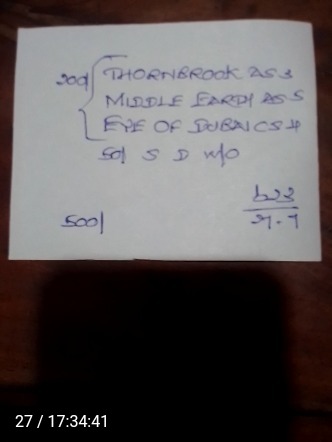 200/ { THORNBROOK AS 3
MIDDLE EARTH AS 5
EYE OF DUBAI CS 4
50/ S D W/O
500/
27 / 17:34:41